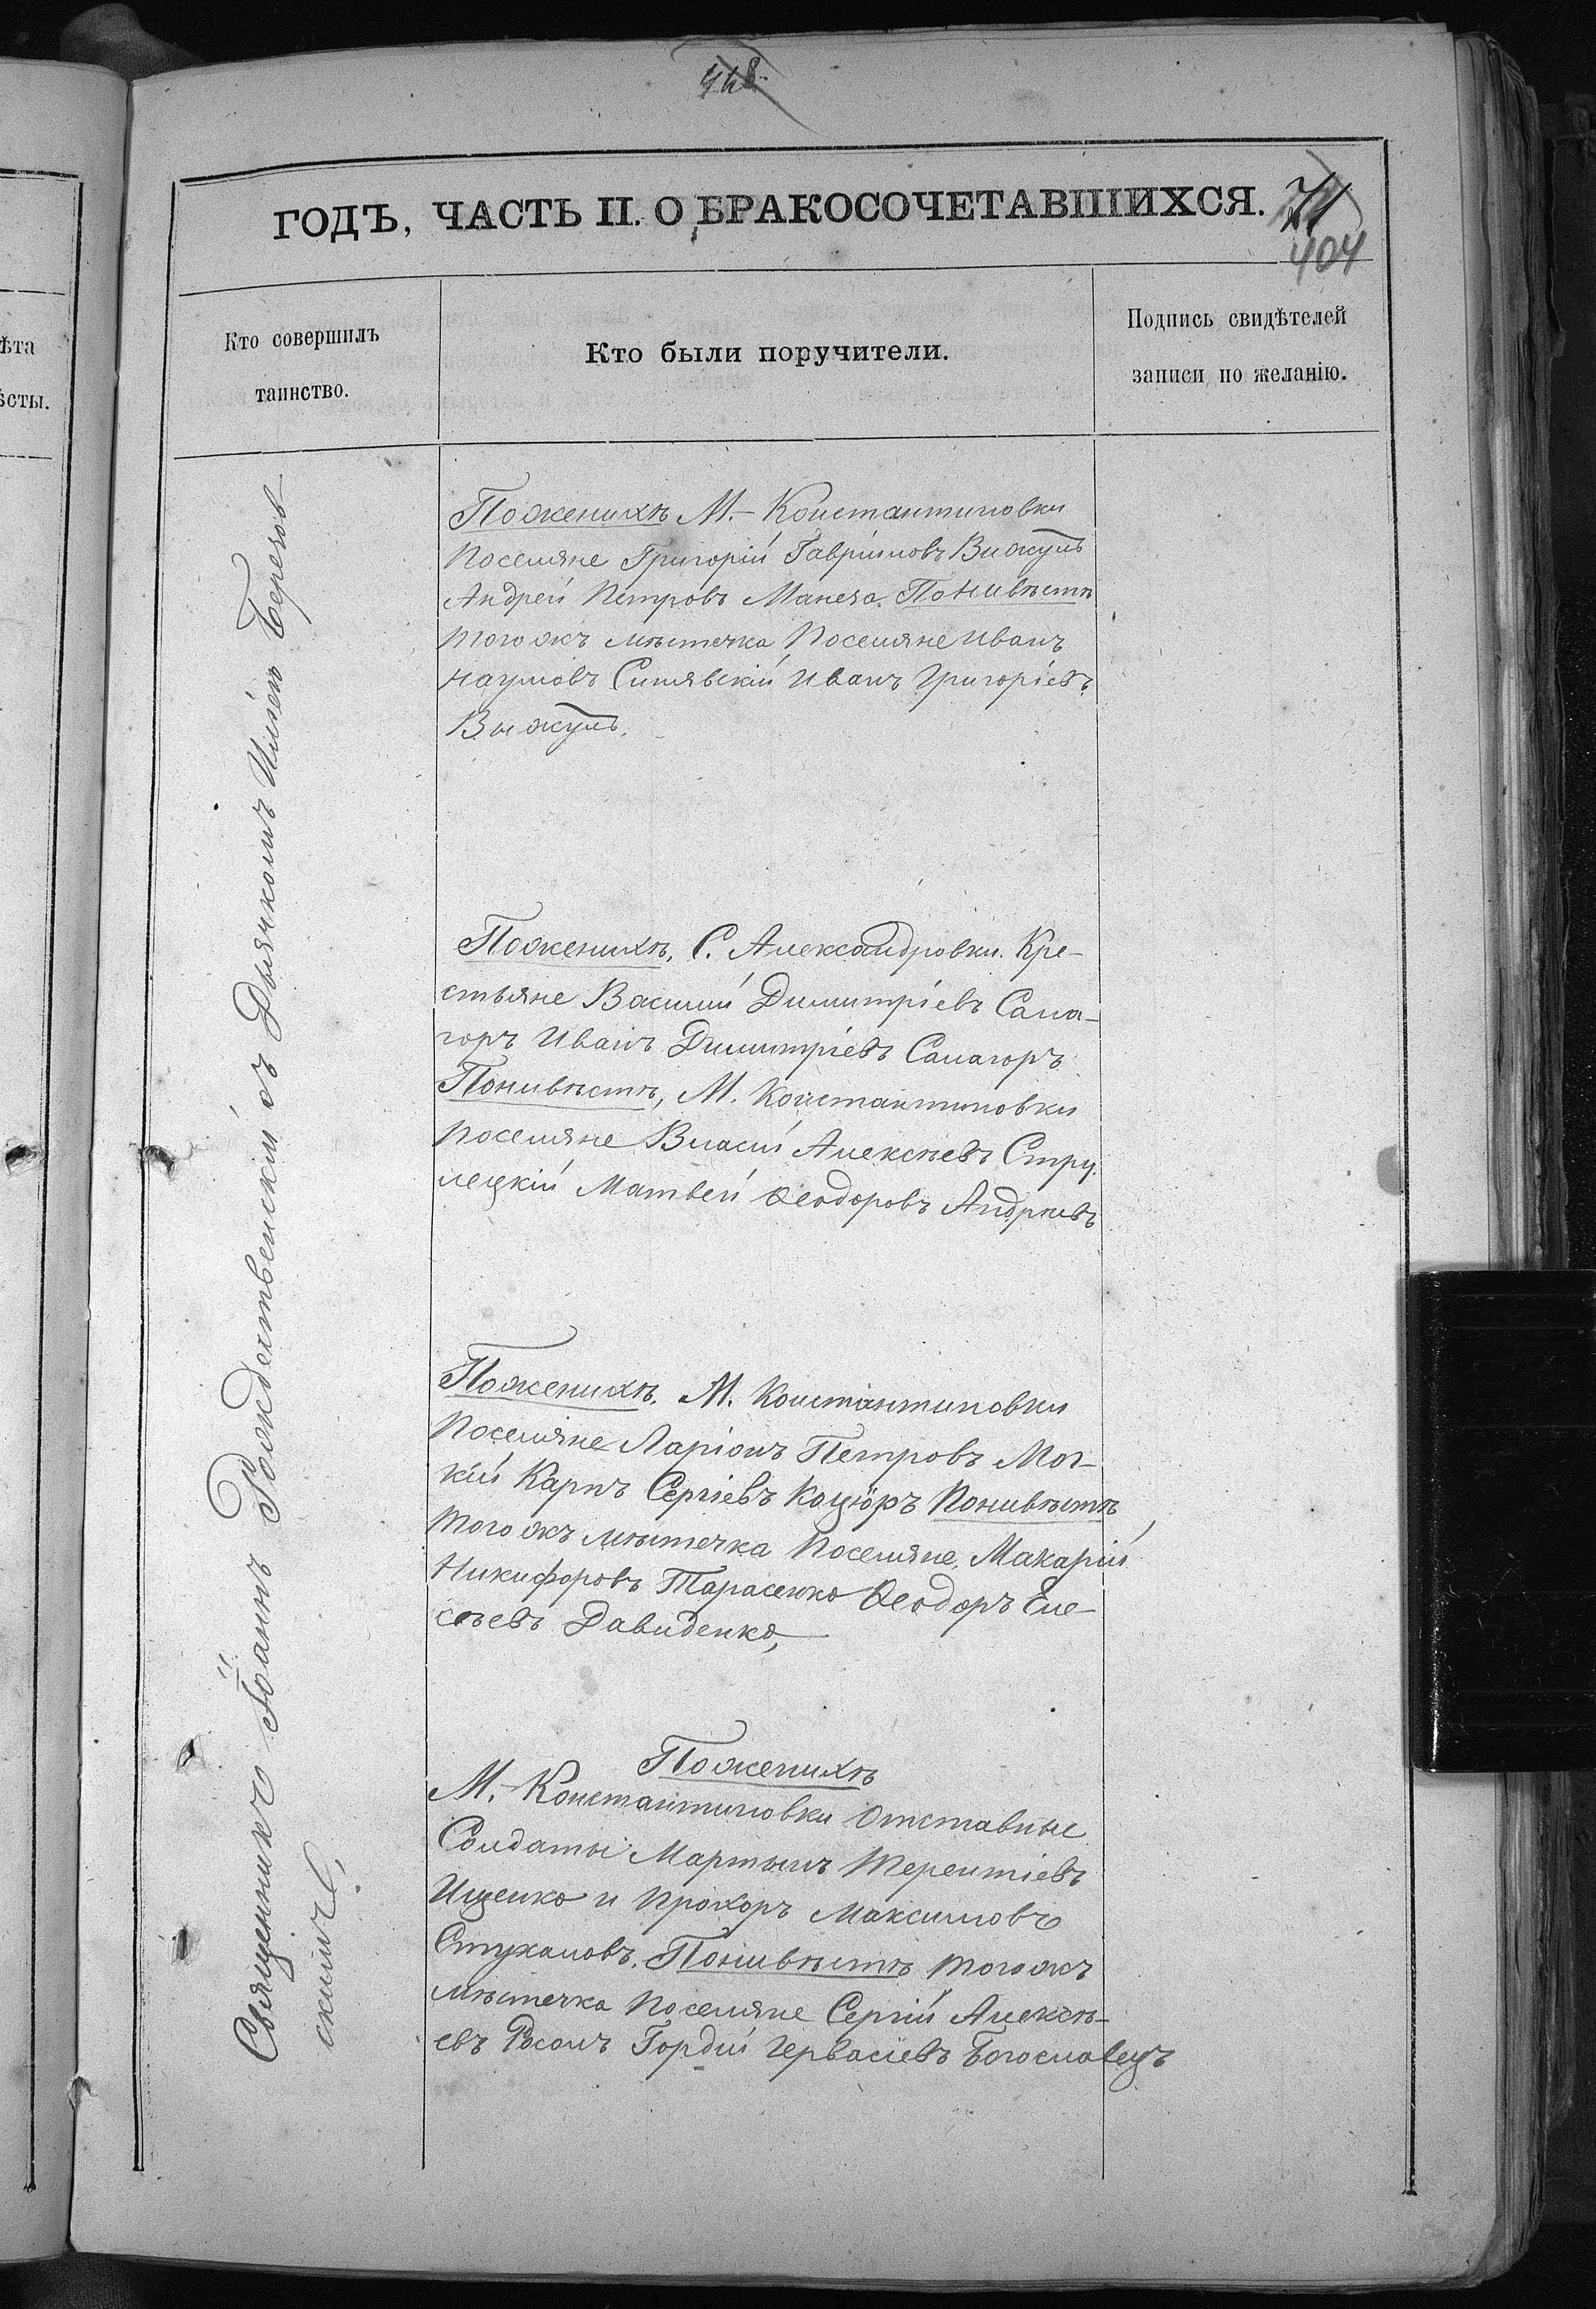 418
ГОДЪ, ЧАСТЬ II. О БРАКОСОЧЕТАВШИХСЯ.
71
404
ѣта
ѣсты.
Кто совершилъ
таинство.
Кто были поручители.
Подпись свидѣтелей
записи по желанію.
Священникъ Іоаннъ Рождественскій съ Дьячкомъ Иліею Березов-
скимъ,
Поженихѣ М.- Константиновки
Поселяне Григорій Гавріиловъ Вижулъ
Андрей Петровъ Манеза. Поневѣстѣ
того жъ мѣстечка, Поселяне Иванъ
Наумовъ Синявскій Иванъ Григоріевъ
Выжулъ.
Поженихѣ, С. Александровки. Кре-
стьяне Василій Димитріевъ Сама-
горъ Иванъ Димитріевъ Самагоръ
Поневѣстѣ, М. Константиновки
Поселяне Власій Алексѣевъ Стру-
лецкій Матвей Ѳеодоровъ Андреевъ
Поженихѣ. М. Константиновки
Поселяне Ларіонъ Петровъ Мог-
кій Карпъ Сергіевъ Коцюръ Поневѣстѣ
того жъ мѣстечка Поселяне, Макарій
Никифоровъ Тарасенко Ѳеодоръ Еле-
сѣевъ Давиденко,
Поженихѣ
М.- Константиновки Отставные
Солдаты Мартынъ Терентіевъ
Ищенко и Прохоръ Максимовъ
Стукаловъ. Поневѣстѣ того жъ
мѣстечка Поселяне Сергій Алексѣ-
евъ Гордій Гервасіевъ Богославецъ